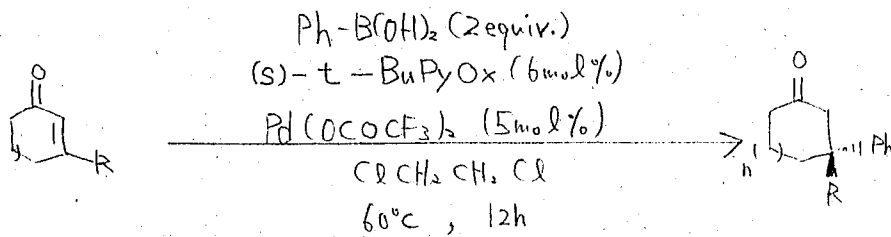 Ph-B(OH)₂ (2equiv.)
(s)-t-BuPyOx (6mol%)
Pd(OCOCF₃)₂ (5mol%)
ClCH₂CH₂Cl
60°C, 12h
O
R
O
n
Ph
R